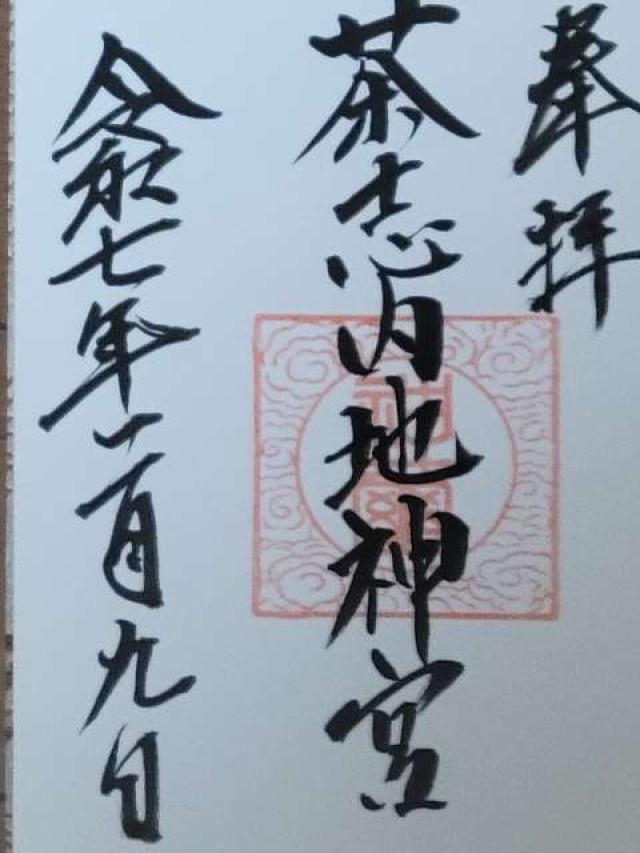 奉拝
茶志内地神宮
令和七年二月九日